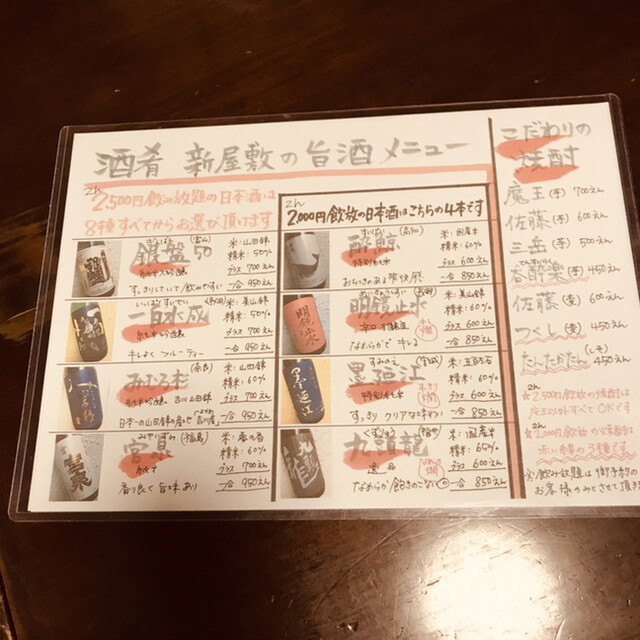 酒肴 新屋敷の旨酒メニュー
2,500円飲み放題の日本酒は
8種すべてからお選び頂けます
銀盤 50 (富山)
米:山田錦
精米:50%
グラス 700えん
一合 950えん
すっきりしていて飲みやすい
一白水成
いっぱくすいせい
米:美山錦
精米:50%
グラス 700えん
一合 950えん
キレよく フルーティー
みむろ杉 (奈良)
米:山田錦
精米:60%
グラス 700えん
一合 950えん
宮泉 (福島)
みやいずみ
純米
精米:60%
グラス 700えん
一合 950えん
香り良く 旨味あり
2,000円飲放の日本酒はこちらの4本です
酔鯨 (高知)
特別純米
米:国産米
精米:60%
グラス 600えん
一合 850えん
明鏡止水
米:美山錦
精米:60%
グラス 600えん
一合 850えん
なめらかで キレる
墨廼江 (宮城)
すみのえ
特別純米
米:五百万石
精米:60%
グラス 600えん
一合 850えん
すっきり クリアな
九頭龍 (福井)
くずりゅう
逸品
米:国産米
精米:65%
グラス 600えん
一合 850えん
なめらか 飽きのこない
こだわりの
焼酎
魔王(芋) 700えん
佐藤(芋) 600えん
三岳(芋) 500えん
呑酔楽(芋) 450えん
佐藤(麦) 600えん
つくし(麦) 450えん
たんたかたん(しそ) 450えん
☆2,500円飲放の焼酎は
魔王以外すべてOKです
☆2,000円飲放の焼酎は
赤い